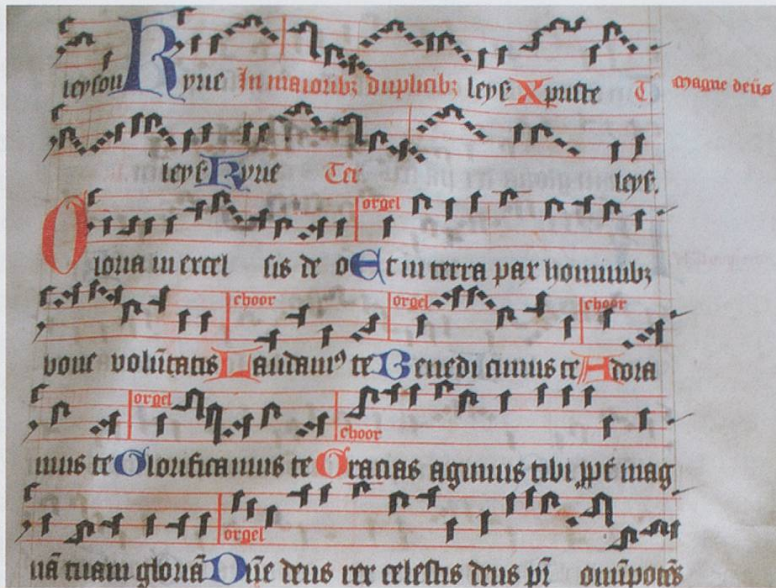 leyson Kyrie In maioribꝫ duplicibꝫ leyſ Xpriste T magne deūs
leyſ Kyrie Ter. leyſ.
orgel
Gloria in excel sis de o Et in terra pax hominibꝫ
choor orgel choor
bone volūtatis Laudamꝰ te Benedi cimus te Adora
orgel choor
mus te Glorifica mus te Gracias agimus tibi ꝓpt̄ mag
orgel
nā tuam gloriā Dn̄e deus rex celestis deus pr̄ omīpotēs